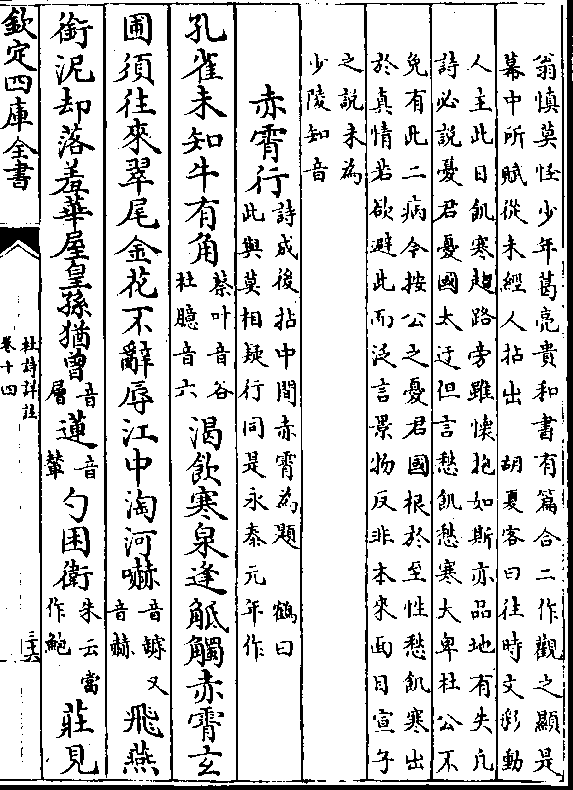 翁慎莫怪少年葛亮貴和書有篇合二作觀之顯是
幕中所賦從未經人拈出 胡夏客曰往時文彩動
人主此日飢寒趨路旁雖懷抱如斯亦品地有失凡
詩必說憂君憂國太迂但言愁飢愁寒大卑杜公不
免有此二病今按公之憂君國根於至性愁飢寒出
於真情若欲避此而泛言景物反非本來面目宣子
之說未為
少陵知音
赤霄行詩成後拈中間赤霄為題 鶴曰此與莫相疑行同是永泰元年作
孔雀未知牛有角蔡叶音谷杜臆音六渴飲寒泉逢觝觸赤霄玄
圃須往來翠尾金花不辭辱江中淘河嚇音罅又音赫飛燕
銜泥却落羞華屋皇孫猶曾音層蓮音輦勺困衛朱云當作鮑莊見
欽定四庫全書
杜詩詳註
卷十四
三六